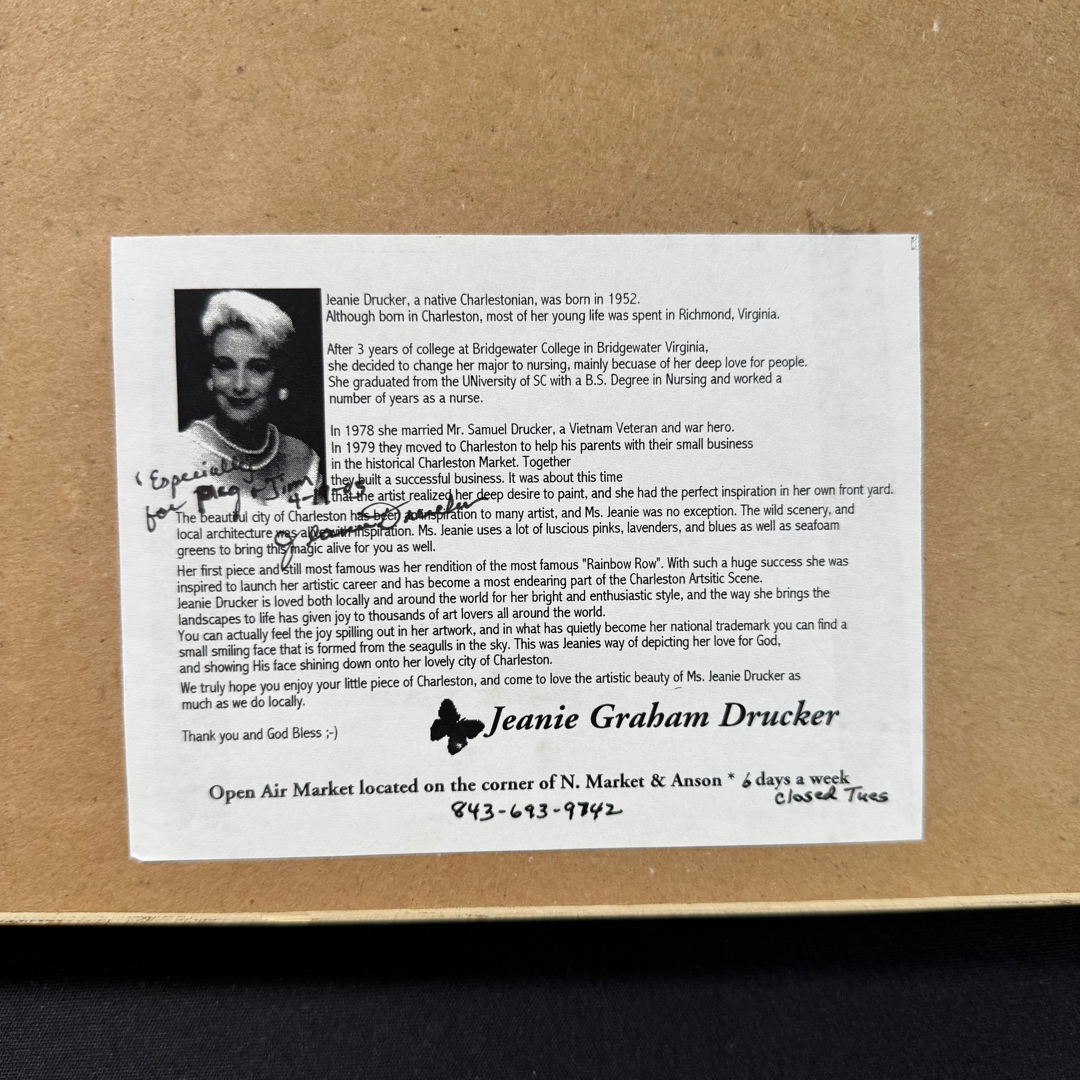 Jeanie Drucker, a native Charlestonian, was born in 1952.
Although born in Charleston, most of her young life was spent in Richmond, Virginia.
After 3 years of college at Bridgewater College in Bridgewater Virginia,
she decided to change her major to nursing, mainly becuase of her deep love for people.
She graduated from the UNiversity of SC with a B.S. Degree in Nursing and worked a
number of years as a nurse.
In 1978 she married Mr. Samuel Drucker, a Vietnam Veteran and war hero.
In 1979 they moved to Charleston to help his parents with their small business
in the historical Charleston Market. Together
they built a successful business. It was about this time
that the artist realized her deep desire to paint, and she had the perfect inspiration in her own front yard.
"Especially
for Tim
The beautiful city of Charleston has been inspiration to many artist, and Ms. Jeanie was no exception. The wild scenery, and
local architecture was with inspiration. Ms. Jeanie uses a lot of luscious pinks, lavenders, and blues as well as seafoam
greens to bring this magic alive for you as well.
Her first piece and still most famous was her rendition of the most famous "Rainbow Row". With such a huge success she was
inspired to launch her artistic career and has become a most endearing part of the Charleston Artsitic Scene.
Jeanie Drucker is loved both locally and around the world for her bright and enthusiastic style, and the way she brings the
landscapes to life has given joy to thousands of art lovers all around the world.
You can actually feel the joy spilling out in her artwork, and in what has quietly become her national trademark you can find a
small smiling face that is formed from the seagulls in the sky. This was Jeanies way of depicting her love for God,
and showing His face shining down onto her lovely city of Charleston.
We truly hope you enjoy your little piece of Charleston, and come to love the artistic beauty of Ms. Jeanie Drucker as
much as we do locally.
Thank you and God Bless ;-)
Jeanie Graham Drucker
Open Air Market located on the corner of N. Market & Anson * 6 days a week
closed Tues
843-693-9742